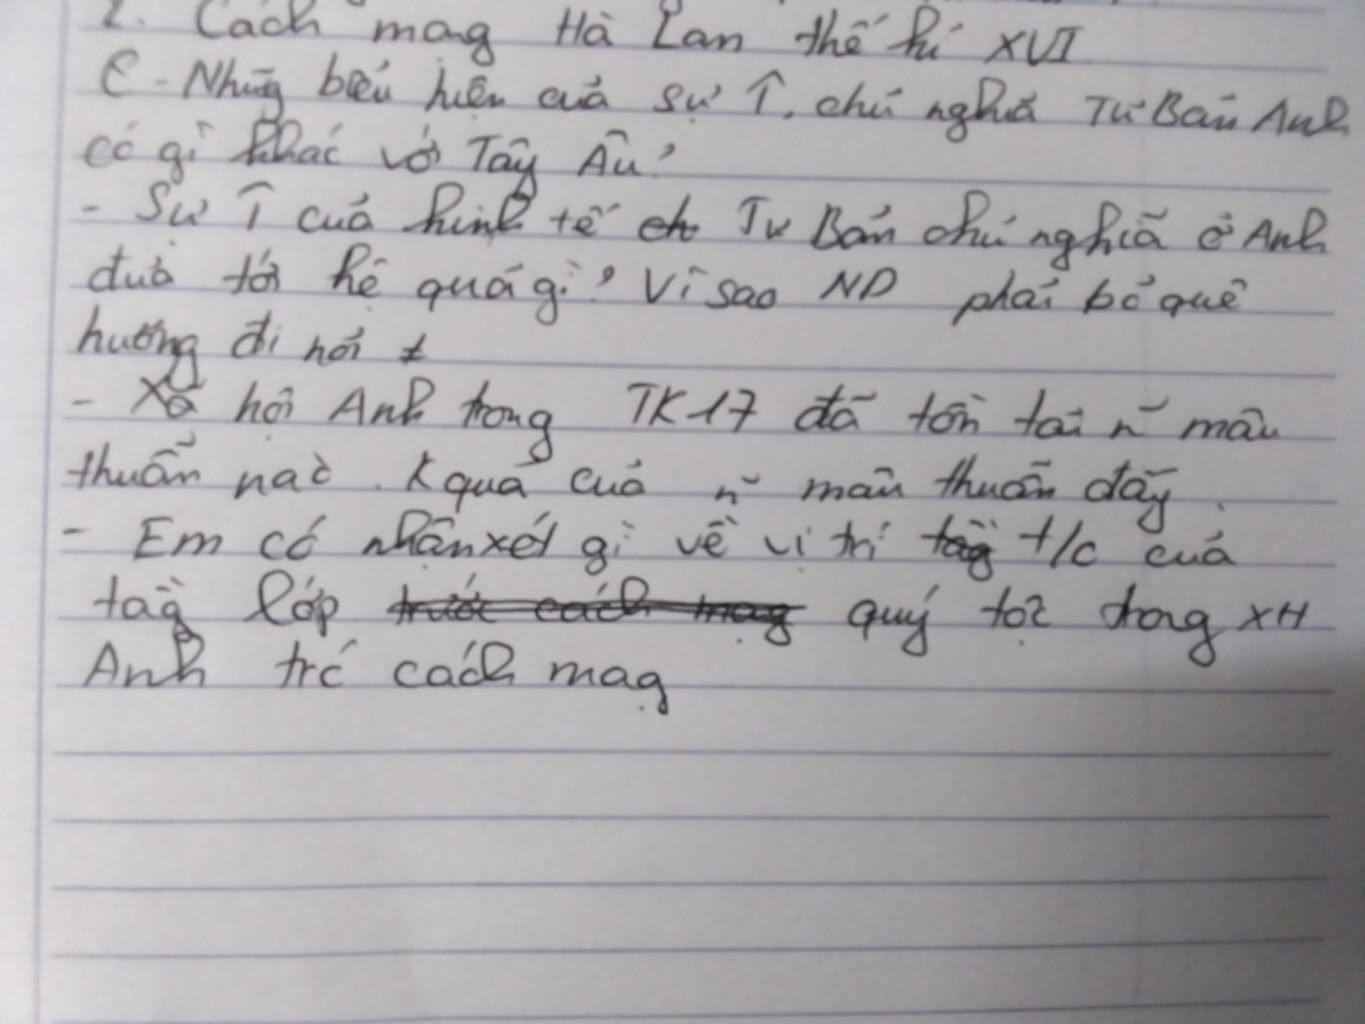 2. Cách mạng Hà Lan thế kỉ XVI
C - Những biểu hiện của sự ↑. chủ nghĩa Tư Bản Anh
có gì khác với Tây Âu?
- Sự ↑ của kinh tế Tư Bản chủ nghĩa ở Anh
đưa tới hệ quả gì? Vì sao ND phải bỏ quê
hương đi nơi ≠
- Xã hội Anh trong TK17 đã tồn tại n~ mâu
thuẫn nào. K quả của n~ mâu thuẫn đấy.
- Em có nhận xét gì về vị trí t/c của
tầng lớp quý tộc trong XH
Anh trc cách mạg